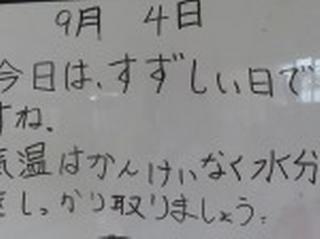 9月 4日
今日は、すずしい日で
すね。
気温はかんけいなく水分
をしっかり取りましょう。